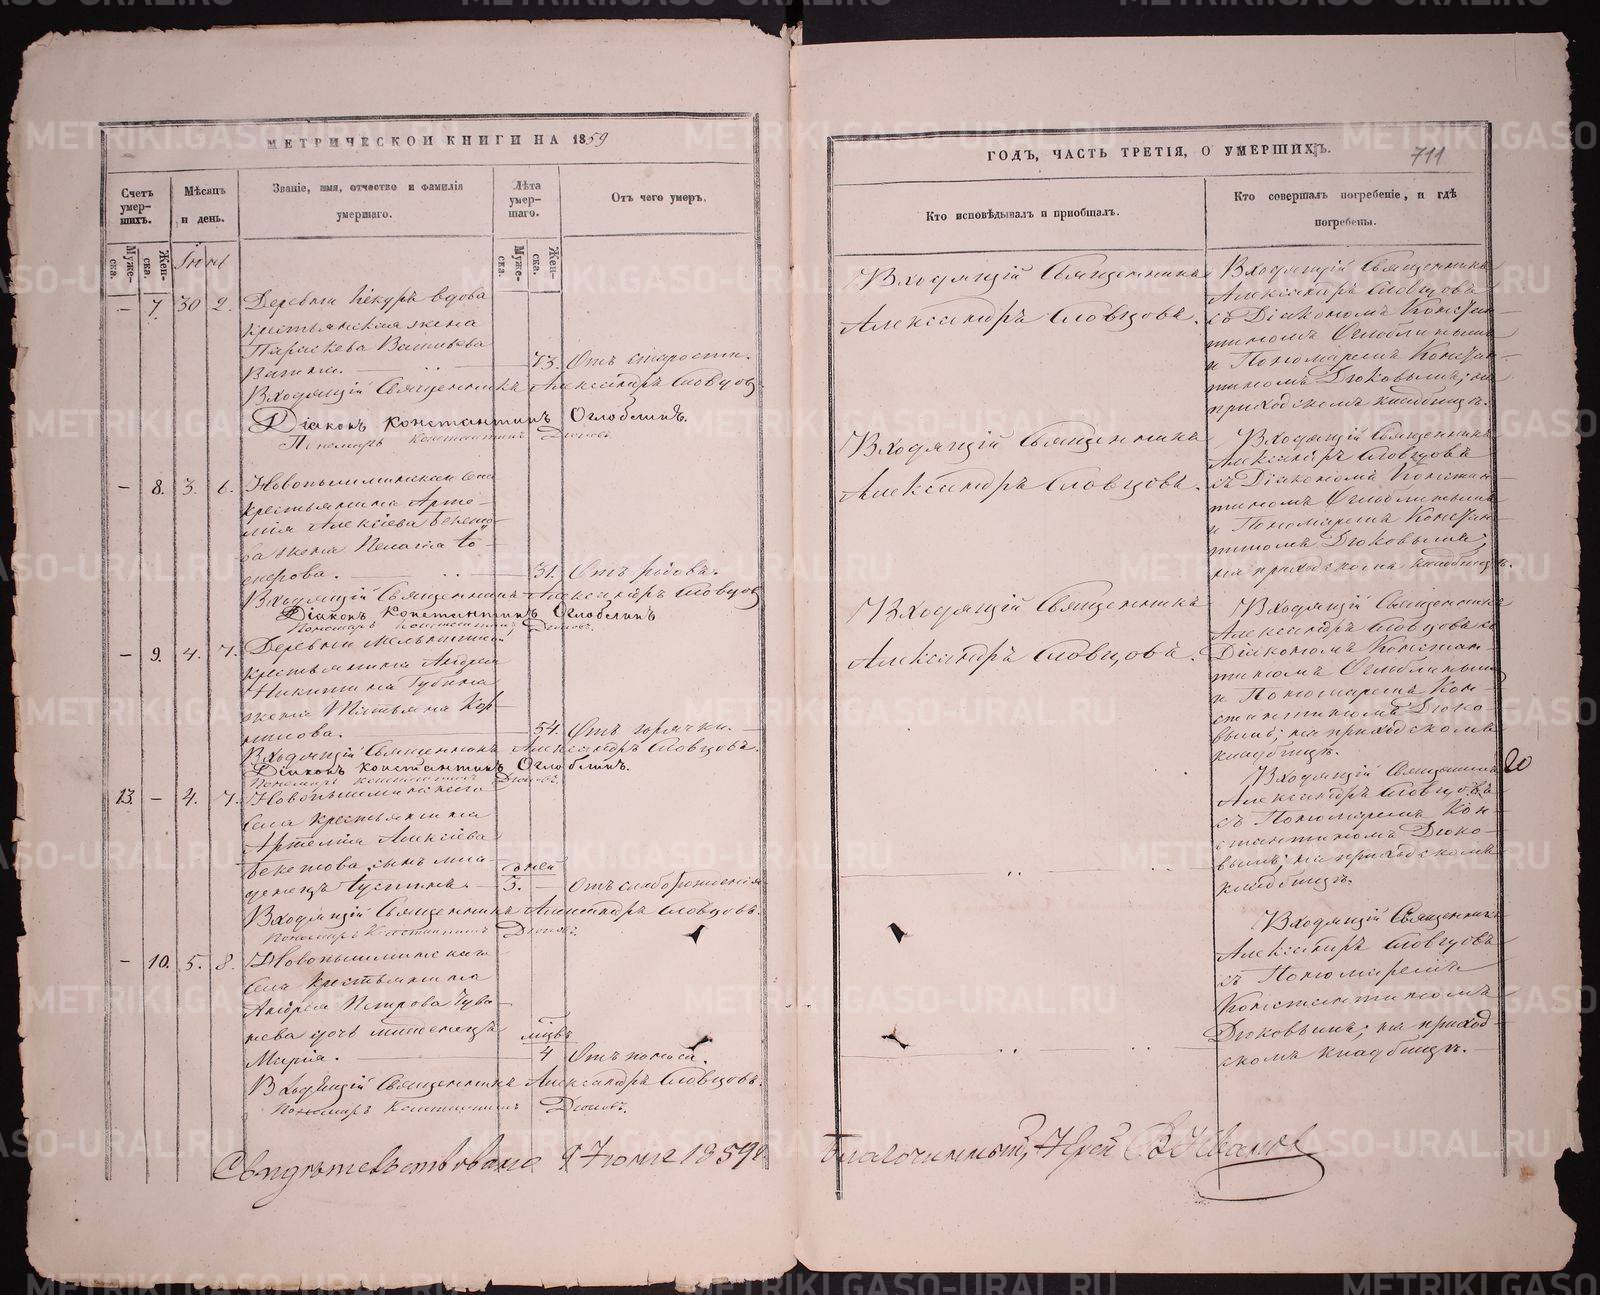 МЕТРИЧЕСКОЙ КНИГИ НА 1859
Счетъ умер-шихъ.
Мѣсяцъ и день.
Званіе, имя, отчество и фамилія умершаго.
Лѣта умер-шаго.
Отъ чего умеръ.
Муже-ска.
Жен-ска.
Муже-ска.
Жен-ска.
Іюнь
– 7. 30 2. Деревни вдова
крестьянская жена
Параскева Васильева
73. Отъ старости.
Входящій Священникъ Александръ Словцовъ
Діаконъ Константинъ Оглоблинъ.
Пономарь Константинъ Дюковъ.
– 8. 3. 6. Новопышминскаго села
крестьянина Арте-
мія Алексѣева Бекето-
ва жена Пелагія
31. Отъ родовъ.
Входящій Священникъ Александръ Словцовъ
Діаконъ Константинъ Оглоблинъ
Пономарь Константинъ Дюковъ.
– 9. 4. 7. Деревни Мельничной
крестьянина Андрея
Никитина Губина
жена Татьяна Кор-
нилова. 54. Отъ горячки.
Входящій Священникъ Александръ Словцовъ.
Діаконъ Константинъ Оглоблинъ.
Пономарь Константинъ Дюковъ.
13. – 4. 7. Новопышминскаго
села крестьянина
Артемія Алексѣева
Бекетова сынъ мла-
дней
денецъ Іустинъ. 5. – Отъ слаборожденія
Входящій Священникъ Александръ Словцовъ.
Пономарь Константинъ Дюковъ.
– 10. 5. 8. Новопышминскаго
села крестьянина
Андрея Петрова
дочь младенецъ
мцвъ
Марія. 4 Отъ поноса.
Входящій Священникъ Александръ Словцовъ.
Пономарь Константинъ Дюковъ.
Свидѣтельствовано 9 Іюня 1859 г.
ГОДЪ, ЧАСТЬ ТРЕТІЯ, О УМЕРШИХЪ.
711
Кто исповѣдывалъ и пріобщалъ.
Кто совершалъ погребеніе, и гдѣ погребены.
Входящій Священникъ
Александръ Словцовъ.
Входящій Священникъ
Александръ Словцовъ
съ Діакономъ Констан-
тиномъ Оглоблинымъ
и Пономаремъ Констан-
тиномъ Дюковымъ; на
приходскомъ кладбищѣ.
Входящій Священникъ
Александръ Словцовъ.
Входящій Священникъ
Александръ Словцовъ
съ Діакономъ Констан-
тиномъ Оглоблинымъ
и Пономаремъ Констан-
тиномъ Дюковымъ;
на приходскомъ кладбищѣ.
Входящій Священникъ
Александръ Словцовъ.
Входящій Священникъ
Александръ Словцовъ съ
Діакономъ Констан-
тиномъ Оглоблинымъ
и Пономаремъ Кон-
стантиномъ Дюко-
вымъ; на приходскомъ
кладбищѣ.
20
Входящій Священникъ
Александръ Словцовъ
съ Пономаремъ Кон-
стантиномъ Дюко-
вымъ; на приходскомъ
кладбищѣ.
Входящій Священникъ
Александръ Словцовъ
съ Пономаремъ
Константиномъ
Дюковымъ; на приход-
скомъ кладбищѣ.
Благочинный, Іерей В. Ивановъ
METRIKI.GASO-URAL.RU